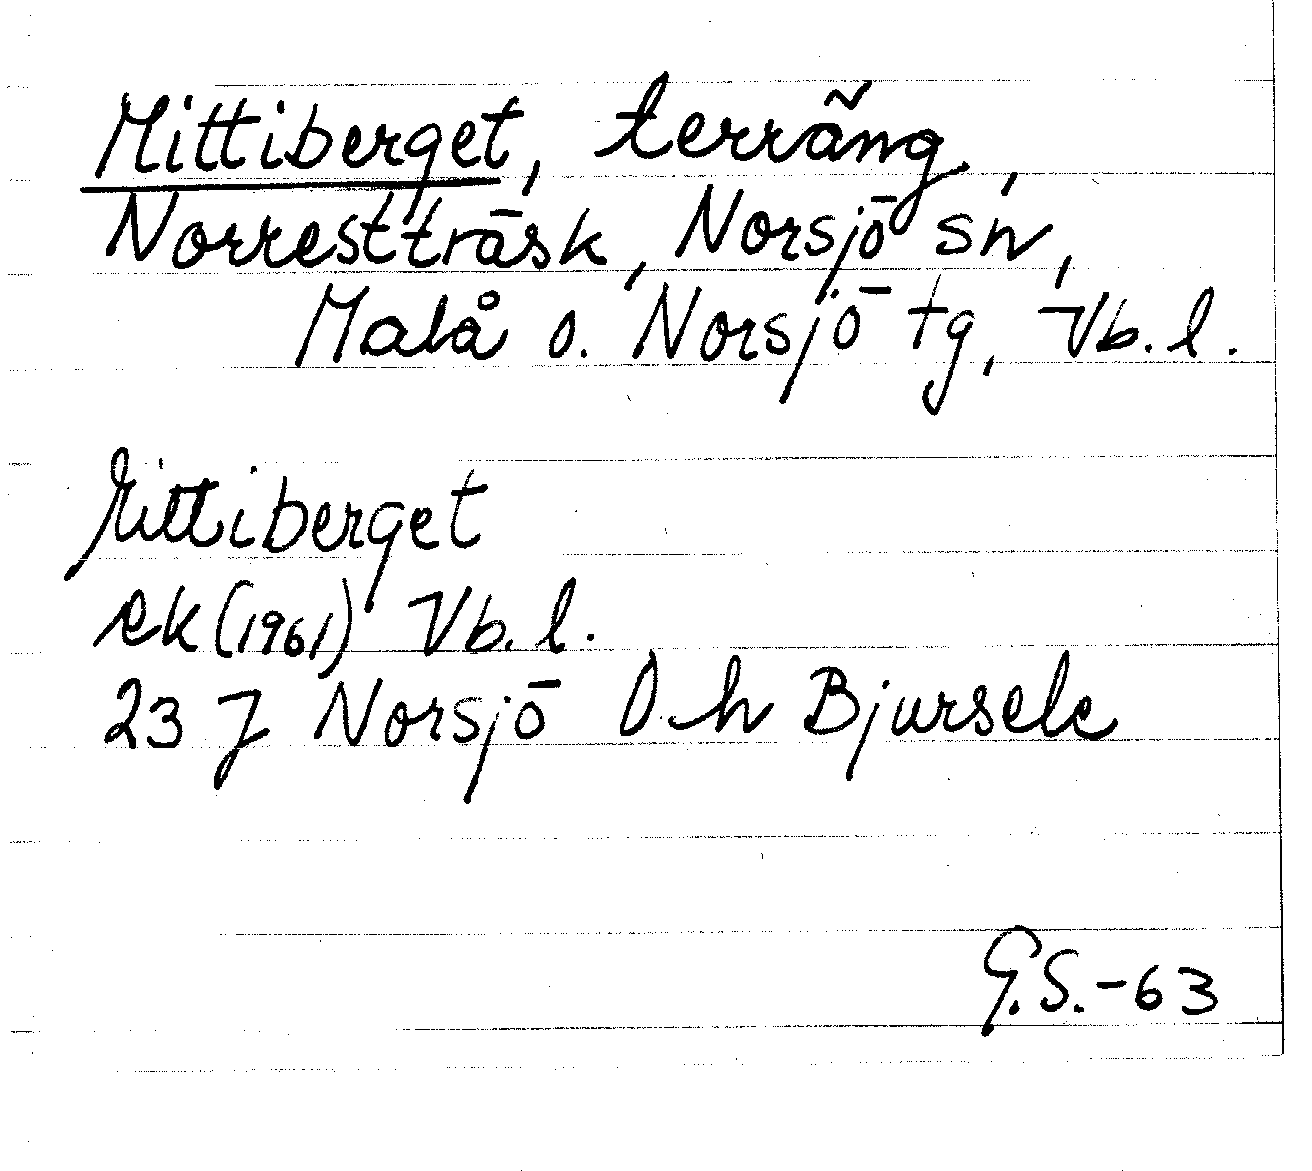 Mittiberget, terräng,
Norrestträsk, Norsjö sn,
Malå o. Norsjö tg, Vb. l.
Mittiberget
ek (1961) Vb. l.
23 J Norsjö O.h Bjursele
G.S.-63